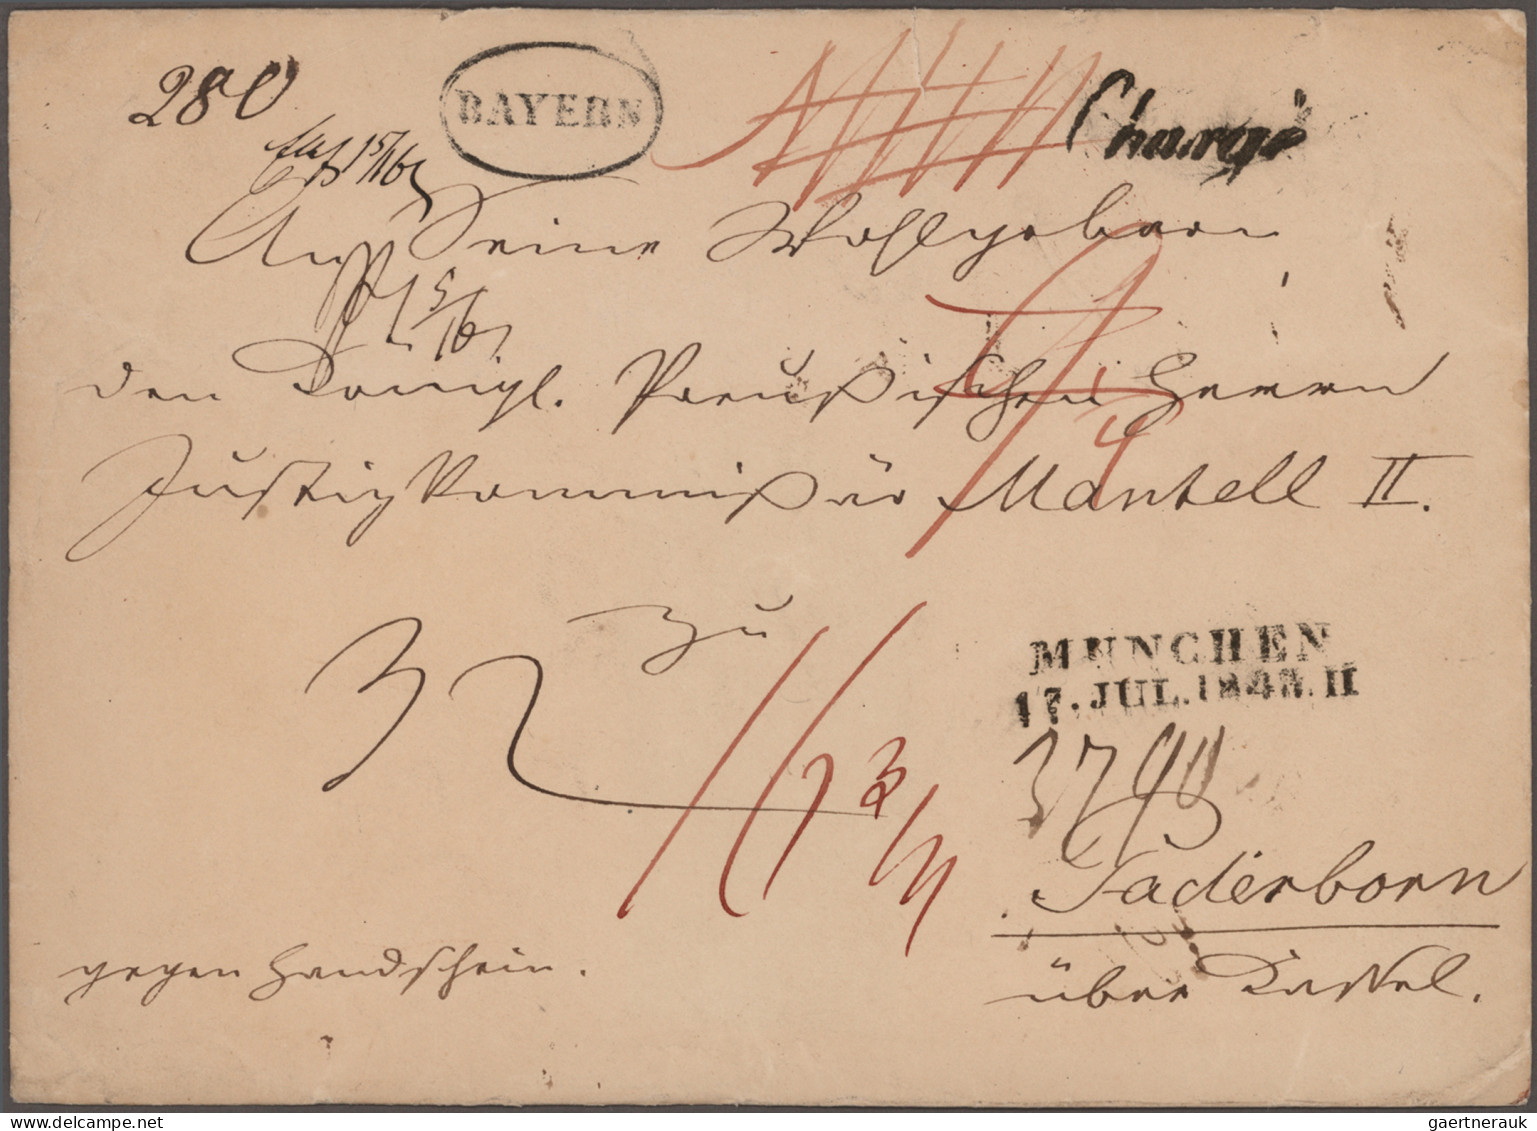 280
BAYERN
Chargé
An Seine Wohlgeboren
den Königl. Preußischen Herrn
Justizkommißär Mantell II.
zu
32
MUNCHEN
17. JUL. 184 . II
3790
Paderborn
über Kassel.
gegen Handschein.
gaertnerauk@